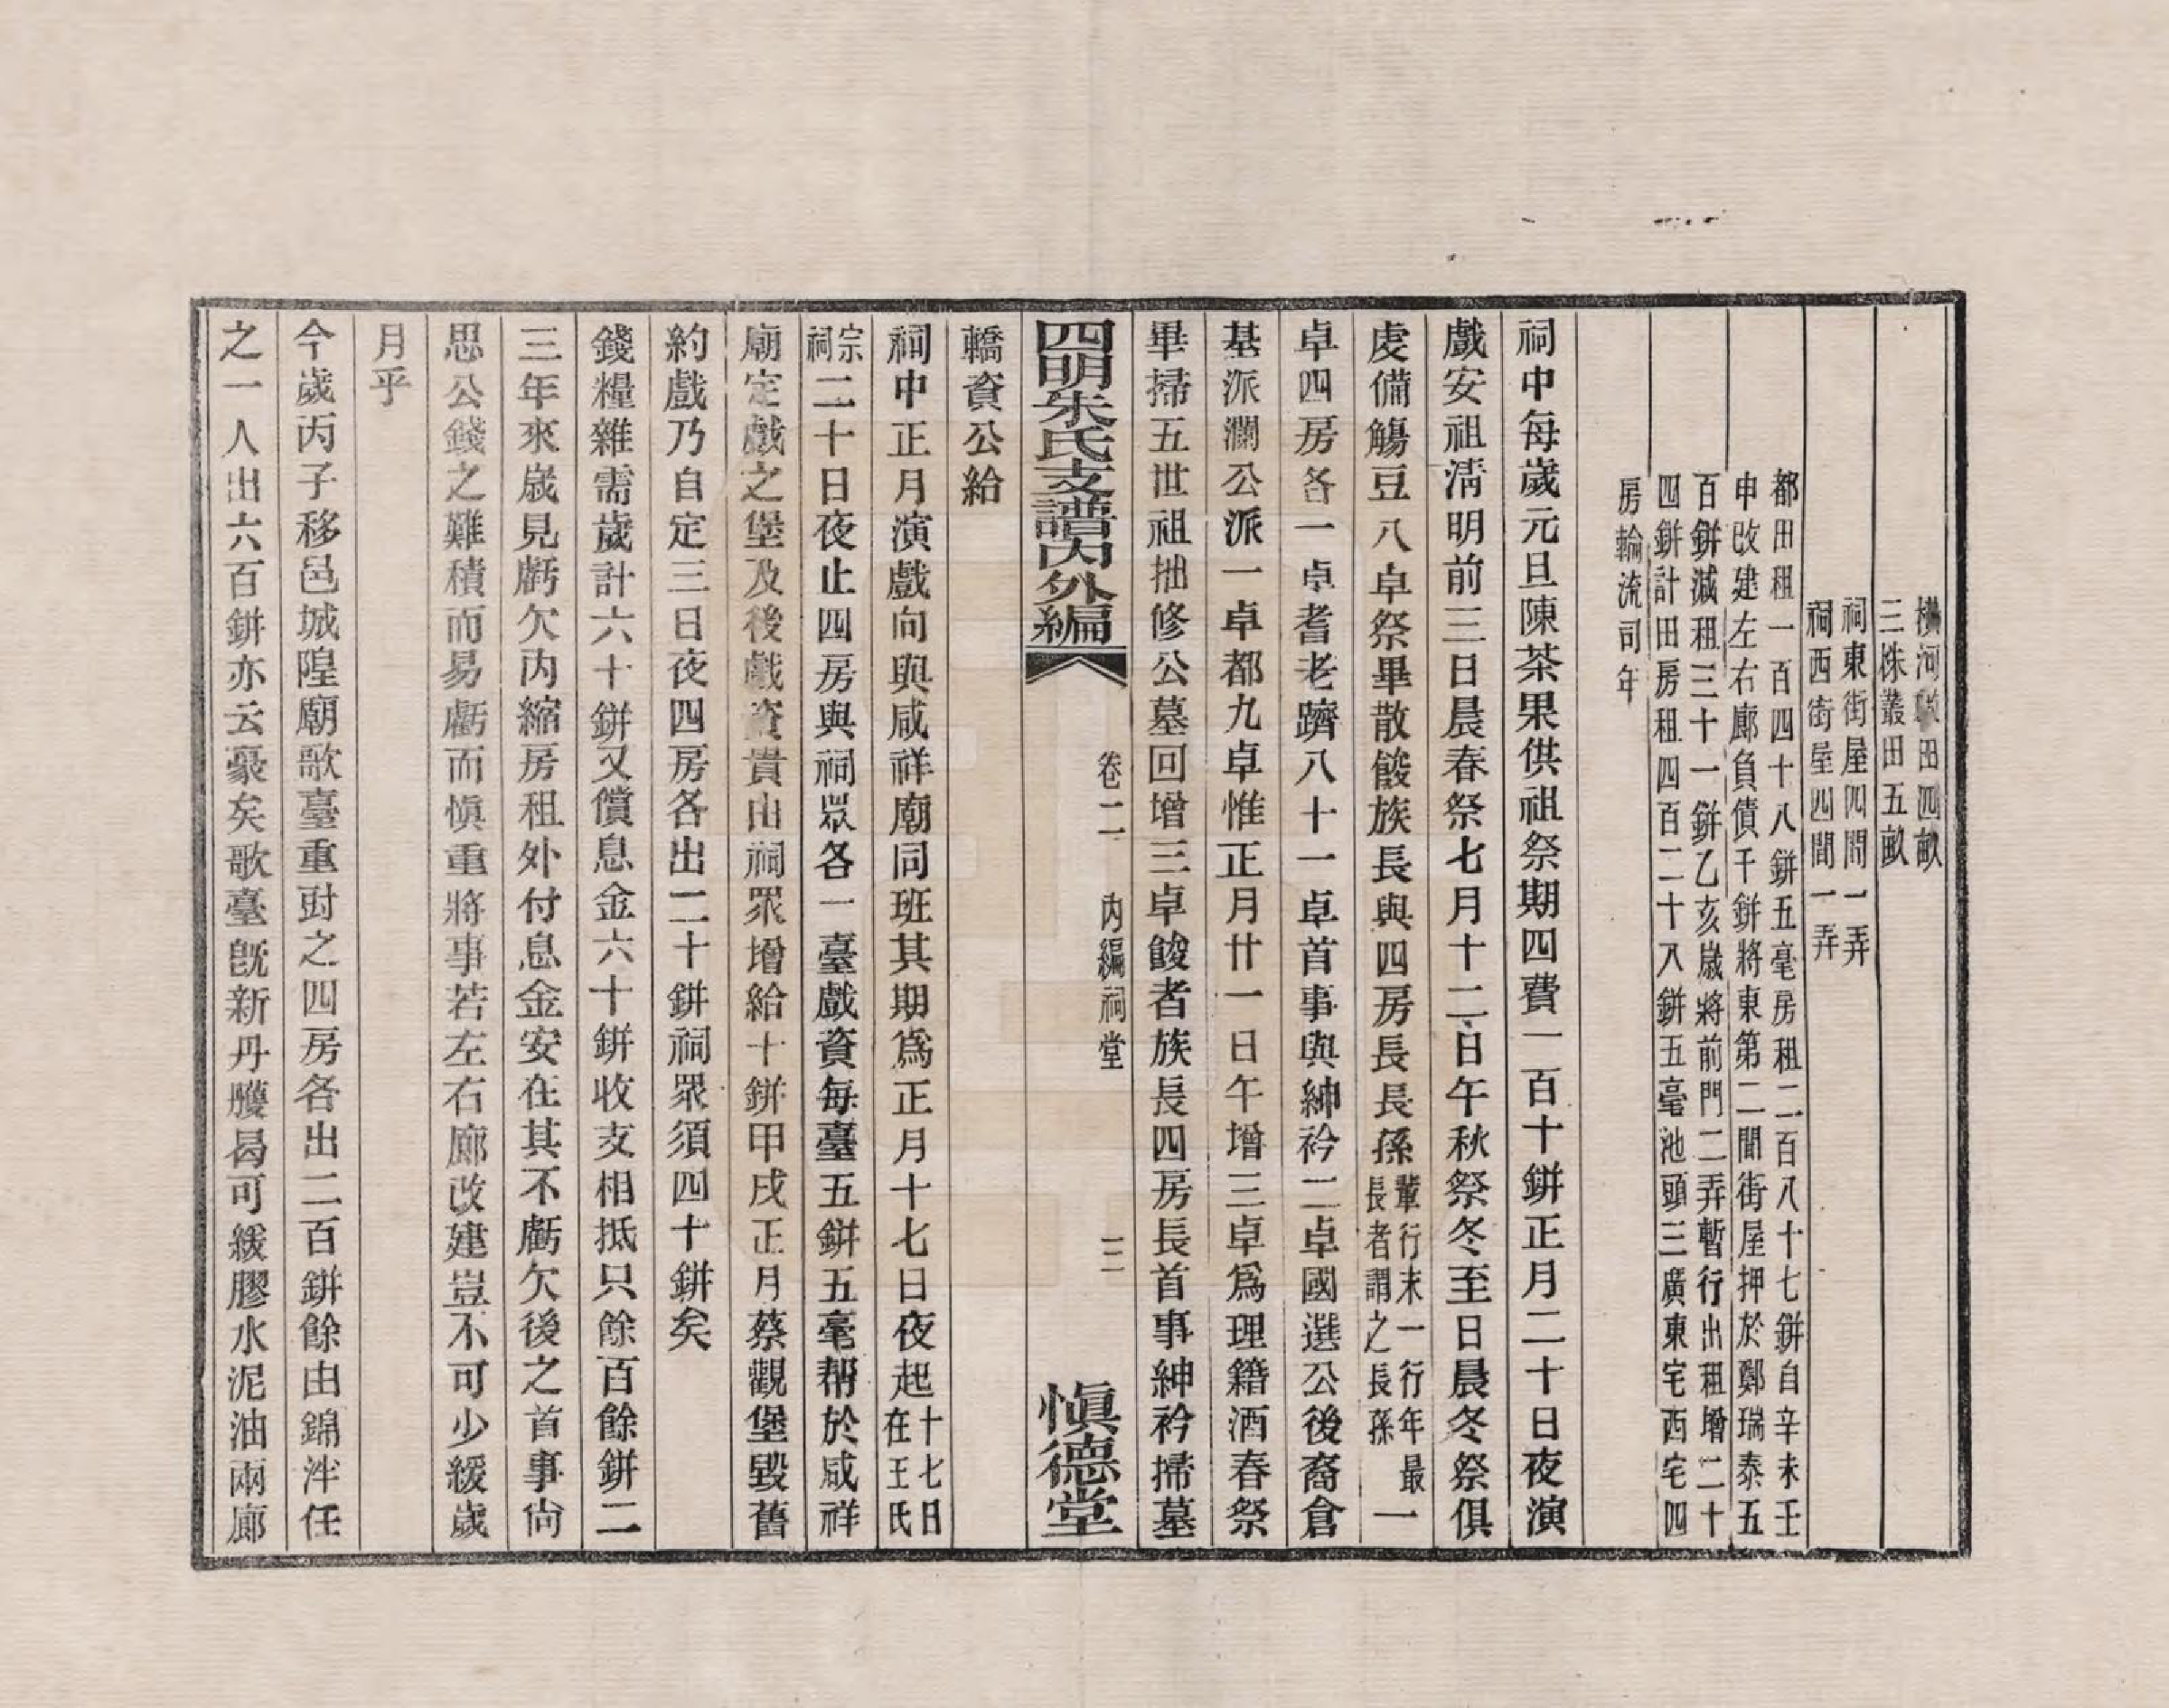 橫河田四畝
三株叢田五畝
祠東街屋四間一弄
祠西街屋四間一弄
都田租一百四十八餠五毫房租二百八十七餠自辛未壬
申改建左右廊負債千餠將東第二間街屋押於鄭瑞泰五
百餠減租三十一餠乙亥歲將前門二弄暫行出租增二十
四餠計田房租四百二十八餠五毫池頭三廣東宅西宅四
房輪流司年
祠中每歲元旦陳茶果供祖祭期四費一百十餠正月二十日夜演
戲安祖淸明前三日晨春祭七月十二日午秋祭冬至日晨冬祭俱
虔備觴豆八卓祭畢散餕族長與四房長長孫輩行末一行年最長者謂之長孫一
卓四房各一卓耆老躋八十一卓首事與紳衿二卓國選公後裔倉
基派瀾公派一卓都九卓惟正月廿一日午增三卓爲理籍酒春祭
畢掃五世祖拙修公墓回增三卓餕者族長四房長首事紳衿掃墓
四明朱氏支譜內外編
卷二
內編祠堂
三
愼德堂
轎資公給
祠中正月演戲向與咸祥廟同班其期爲正月十七日夜起十七日在王氏
宗祠二十日夜止四房與祠眾各一臺戲資每臺五餠五毫帮於咸祥
廟定戲之堡及後戲資貴由祠眾增給十餠甲戌正月蔡觀堡毀舊
約戲乃自定三日夜四房各出二十餠祠眾須四十餠矣
錢糧雜需歲計六十餠又償息金六十餠收支相抵只餘百餘餠二
三年來歲見虧欠內縮房租外付息金安在其不虧欠後之首事尙
思公錢之難積而易虧而愼重將事若左右廊改建豈不可少緩歲
月乎
今歲丙子移邑城隍廟歌臺重尌之四房各出二百餠餘由錦泮任
之一人出六百餠亦云豪矣歌臺旣新丹雘曷可緩膠水泥油兩廊